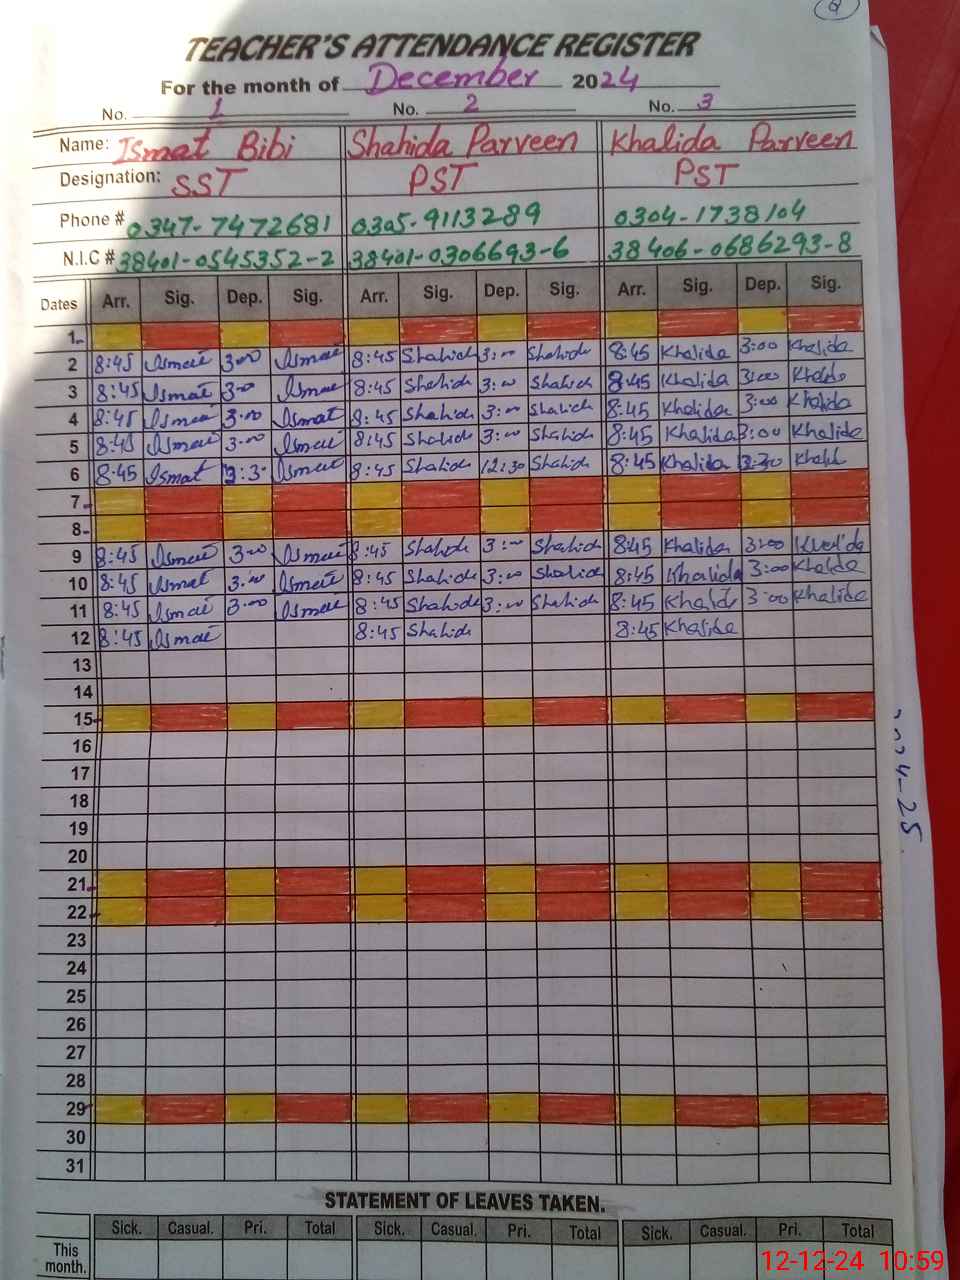 2
TEACHER'S ATTENDANCE REGISTER
For the month of December 2024
No. 1 No. 2 No. 3
Name: Ismat Bibi Shahida Parveen Khalida Parveen
Designation: SST PST PST
Phone # 0347-7472681 0305-9113289 0304-1738104
N.I.C # 38401-0545352-2 38401-0306693-6 38406-0686293-8
Dates Arr. Sig. Dep. Sig. Arr. Sig. Dep. Sig. Arr. Sig. Dep. Sig.
1
2 8:45 Ismat 3:00 Ismat 8:45 Shahida 3:00 Shahida 8:45 Khalida 3:00 Khalida
3 8:45 Ismat 3:00 Ismat 8:45 Shahida 3:00 Shahida 8:45 Khalida 3:00 Khalida
4 8:45 Ismat 3:00 Ismat 8:45 Shahida 3:00 Shahida 8:45 Khalida 3:00 Khalida
5 8:45 Ismat 3:00 Ismat 8:45 Shahida 3:00 Shahida 8:45 Khalida 3:00 Khalida
6 8:45 Ismat Ismat 8:45 Shahida 12:30 Shahida 8:45 Khalida Khalid
7
8
9 8:45 Ismat 3:00 Ismat 8:45 Shahida 3:00 Shahida 8:45 Khalida 3:00 Khalida
10 8:45 Ismat 3:00 Ismat 8:45 Shahida 3:00 Shahida 8:45 Khalida 3:00 Khalida
11 8:45 Ismat 3:00 Ismat 8:45 Shahida 3:00 Shahida 8:45 Khalida 3:00 Khalida
12 8:45 Ismat 8:45 Shahida 8:45 Khalida
13
14
15
16
17
18
19
20
21
22
23
24
25
26
27
28
29
30
31
2024-25
STATEMENT OF LEAVES TAKEN.
Sick. Casual. Pri. Total Sick. Casual. Pri. Total Sick. Casual. Pri. Total
This
month.
12-12-24 10:59